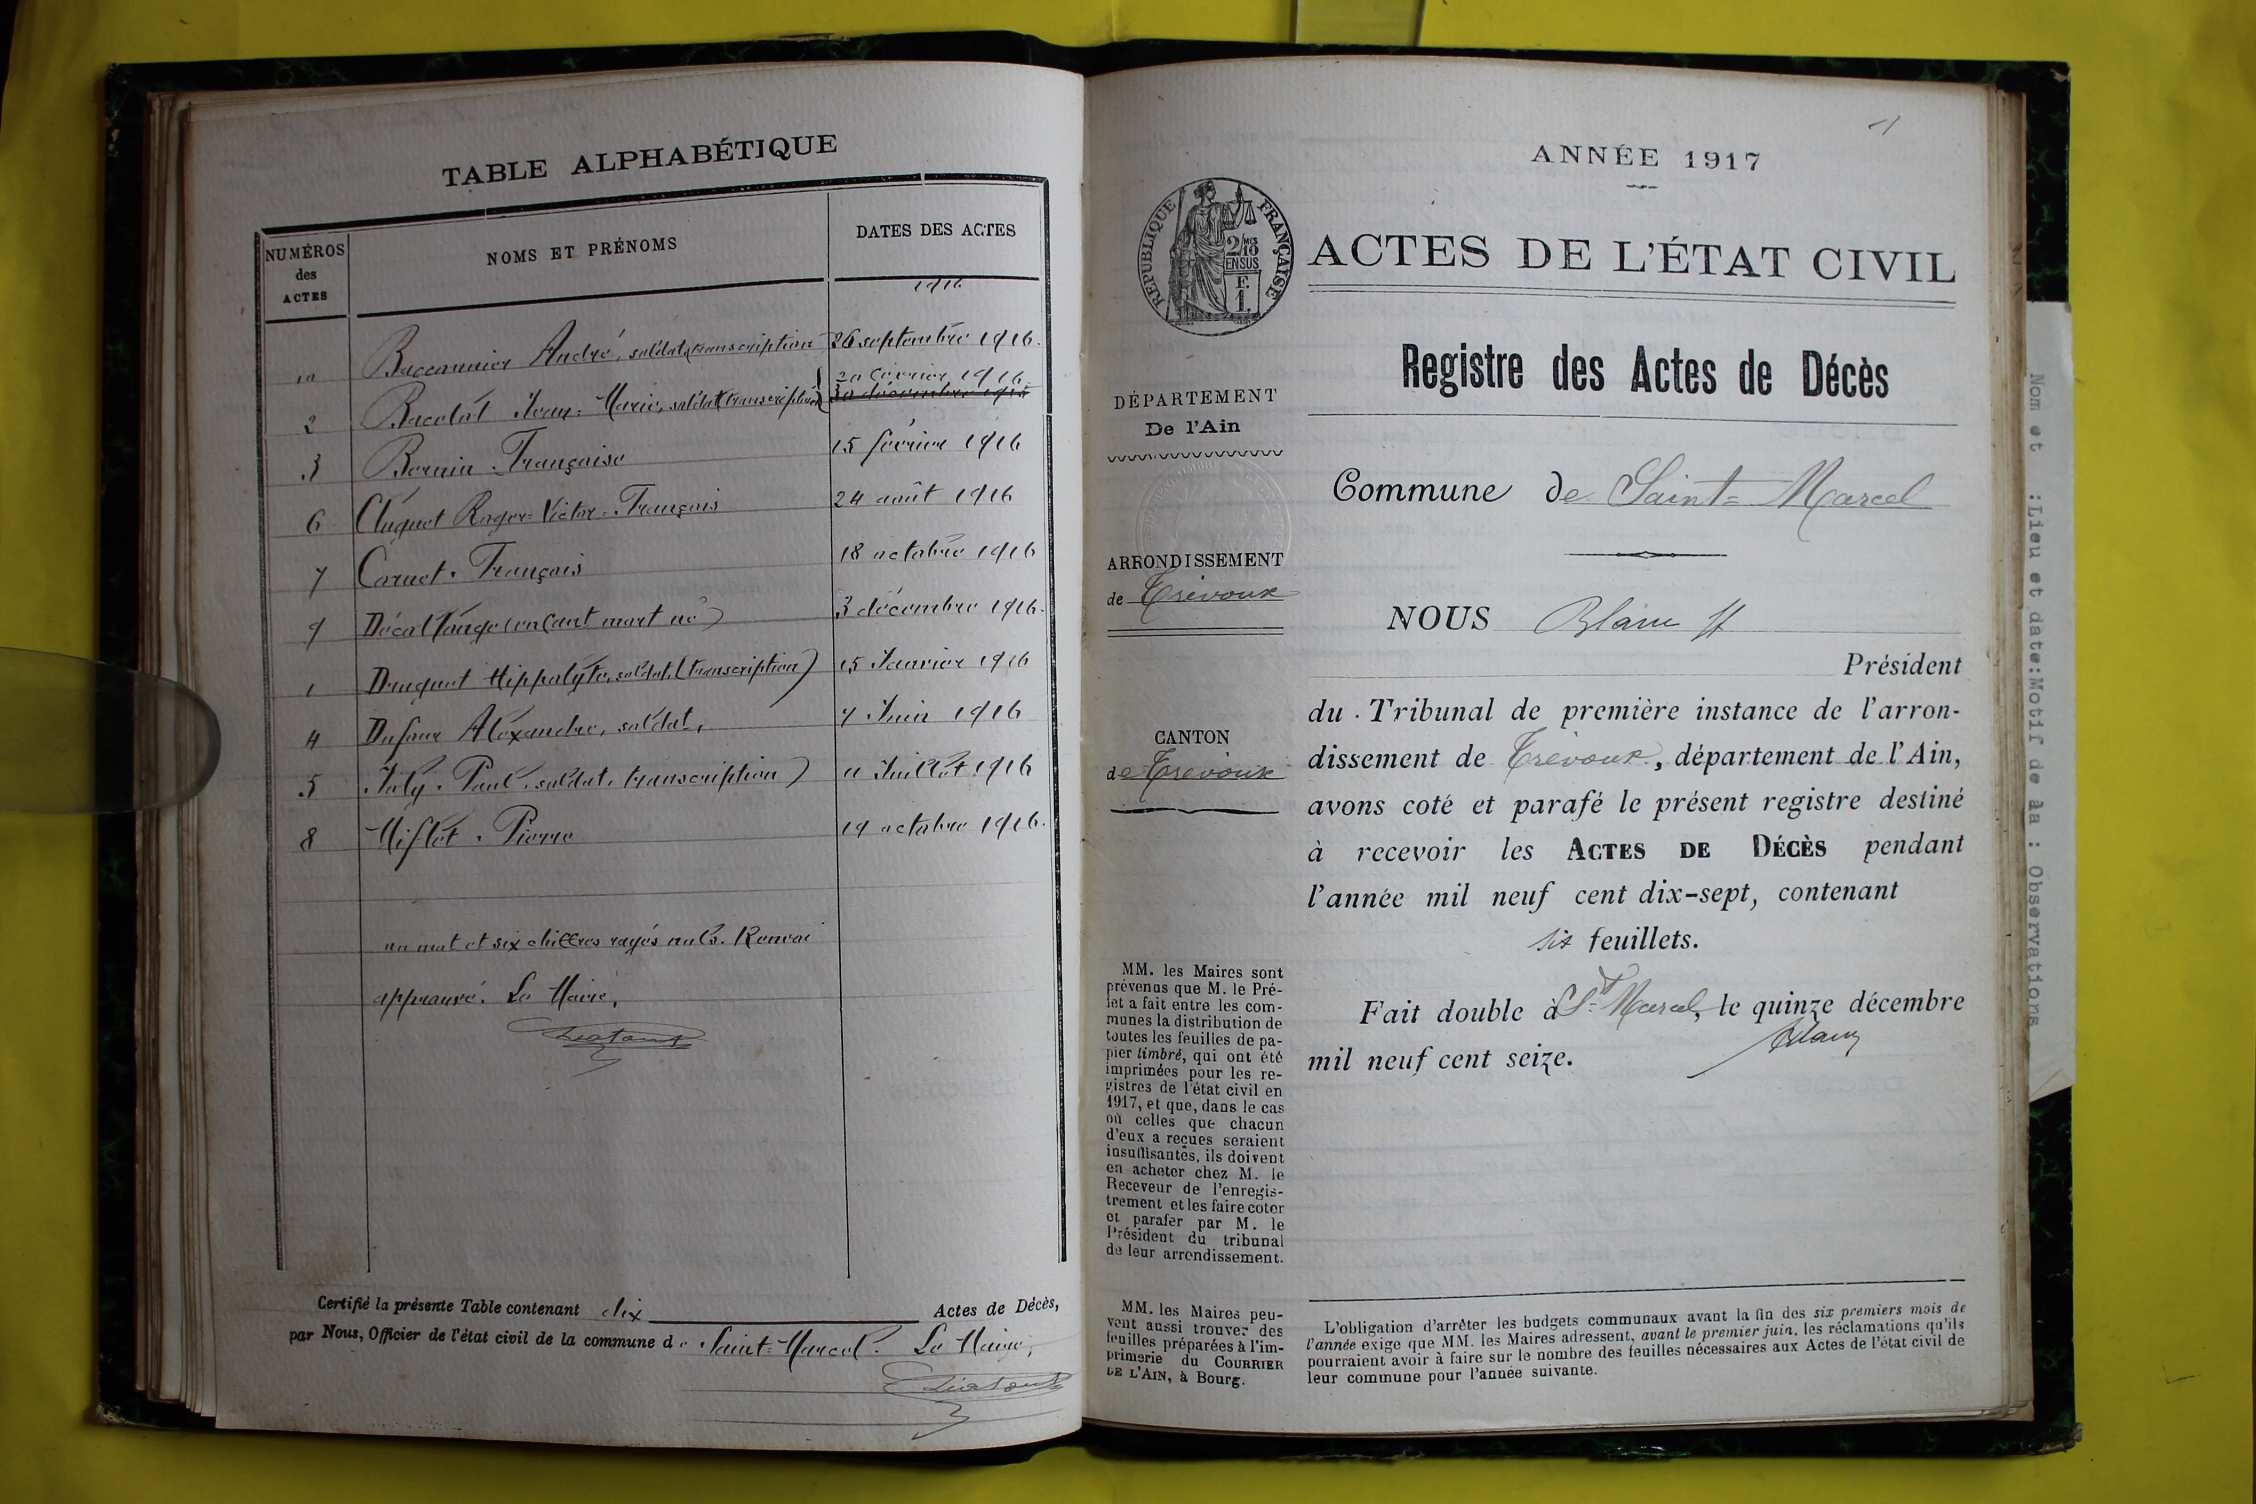 TABLE ALPHABÉTIQUE
NUMÉROS
des
ACTES
NOMS ET PRÉNOMS
DATES DES ACTES
1916
10 Baconnier André, soldat (transcription 26 septembre 1916.
2 Bacolat Jean-Marie, soldat (transcription) 20 février 1916
30 décembre 1915
3 Bernin Françoise 15 février 1916
6 Cluquet Roger-Victor-François 24 août 1916
7 Cornet François 18 octobre 1916
9 (enfant mort né) 3 décembre 1916.
1 Druguet Hippolyte, soldat, (transcription) 15 Janvier 1916
4 Dufour Alexandre, soldat, 7 Juin 1916
5 Joly Paul, soldat, transcription) 11 Juillet 1916
8 Miflet Pierre 19 octobre 1916.
un mot et six chiffres rayés nuls. Renvoi
approuvé. Le Maire,
Certifié la présente Table contenant dix Actes de Décès,
par Nous, Officier de l'état civil de la commune de Saint-Marcel. Le Maire,
1
ANNÉE 1917
RÉPUBLIQUE FRANÇAISE
2/10 MES
EN SUS
F.
1.
ACTES DE L'ÉTAT CIVIL
Registre des Actes de Décès
DÉPARTEMENT
De l'Ain
Commune de Saint-Marcel
ARRONDISSEMENT
de Trévoux
NOUS Blain
Président
du Tribunal de première instance de l'arron-
dissement de Trévoux, département de l'Ain,
avons coté et parafé le présent registre destiné
à recevoir les ACTES DE DÉCÈS pendant
l'année mil neuf cent dix-sept, contenant
six feuillets.
Fait double à St Marcel, le quinze décembre
mil neuf cent seize.
Blain
CANTON
de Trévoux
MM. les Maires sont
prévenus que M. le Pré-
fet a fait entre les com-
munes la distribution de
toutes les feuilles de pa-
pier timbré, qui ont été
imprimées pour les re-
gistres de l'état civil en
1917, et que, dans le cas
où celles que chacun
d'eux a reçues seraient
insuffisantes, ils doivent
en acheter chez M. le
Receveur de l'enregis-
trement et les faire coter
et parafer par M. le
Président du tribunal
de leur arrondissement.
MM. les Maires peu-
vent aussi trouver des
feuilles préparées à l'im-
primerie du COURRIER
DE L'AIN, à Bourg.
L'obligation d'arrêter les budgets communaux avant la fin des six premiers mois de
l'année exige que MM. les Maires adressent, avant le premier juin, les réclamations qu'ils
pourraient avoir à faire sur le nombre des feuilles nécessaires aux Actes de l'état civil de
leur commune pour l'année suivante.
Nom et :Lieu et date:Motif de : Observations